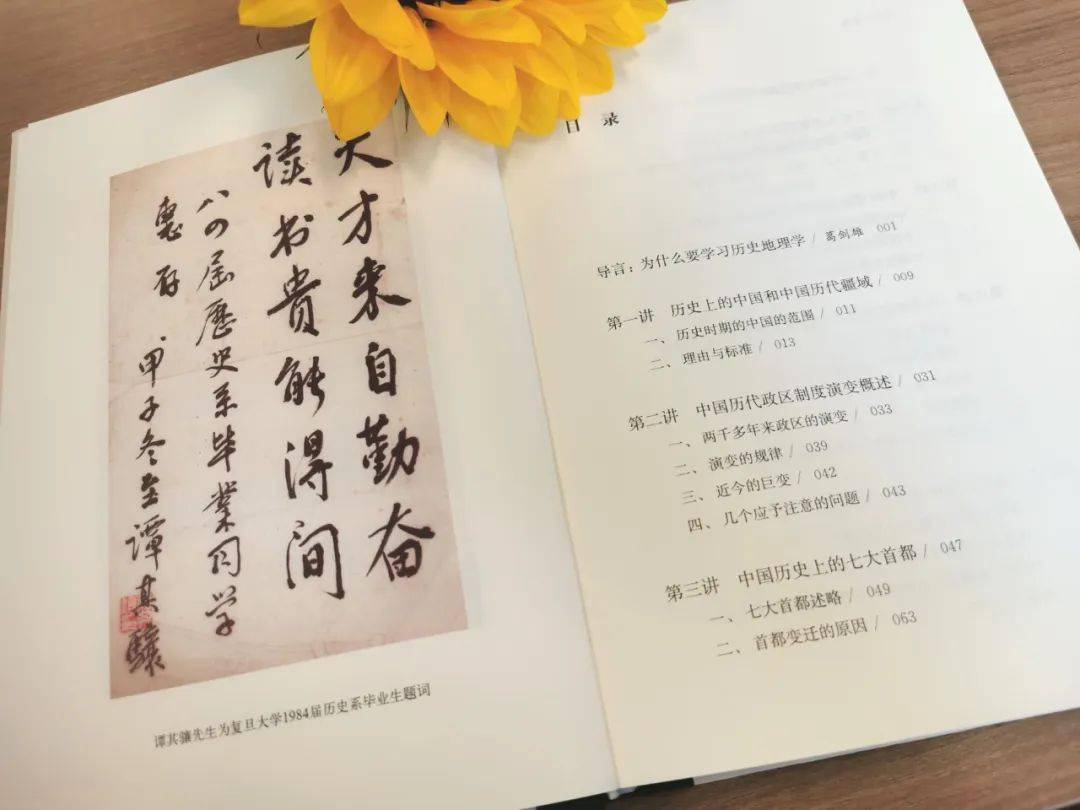 天才来自勤奋
读书贵能得间
八四届歷史系毕業同学
惠存
甲子冬至譚其驤
谭其骧先生为复旦大学1984届历史系毕业生题词
目 录
导言：为什么要学习历史地理学 / 葛剑雄 001
第一讲 历史上的中国和中国历代疆域 / 009
一、历史时期的中国的范围 / 011
二、理由与标准 / 013
第二讲 中国历代政区制度演变概述 / 031
一、两千多年来政区的演变 / 033
二、演变的规律 / 039
三、近今的巨变 / 042
四、几个应予注意的问题 / 043
第三讲 中国历史上的七大首都 / 047
一、七大首都述略 / 049
二、首都变迁的原因 / 063